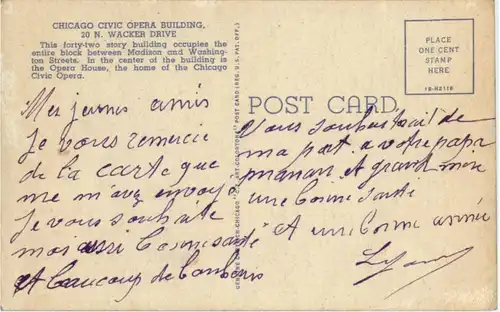 CHICAGO CIVIC OPERA BUILDING,
20 N. WACKER DRIVE
This forty-two story building occupies the
entire block between Madison and Washing-
ton Streets. In the center of the building is
the Opera House, the home of the Chicago
Civic Opera.
PLACE
ONE CENT
STAMP
HERE
1B-H2118
POST CARD
Mes jeunes amis
Je vous remercie
de la carte que
me m'avez envoyé
Je vous souhaite
moi aussi bonne santé
et beaucoup de bonbons
Vous souhaiterait de
ma part a votre papa
maman et grand mere
une bonne santé
et une bonne année